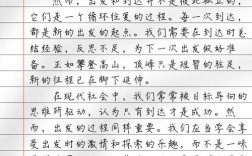 然而，出发和到达并不是彼此孤立的，
它们是一个循环往复的过程。每一次到达，
都是新的出发的起点。我们需要在到达时总
结经验，反思不足，为下一次出发做好准
备。正如攀登高山，顶峰只是短暂的驻足，
新的征程已在脚下延伸。
在现代社会中，我们常常被目标导向的
思维所驱动，认为只有到达才是成功。然
而，出发的过程同样重要。我们应当学会享
受出发时的激情和探索的乐趣，而不是一味